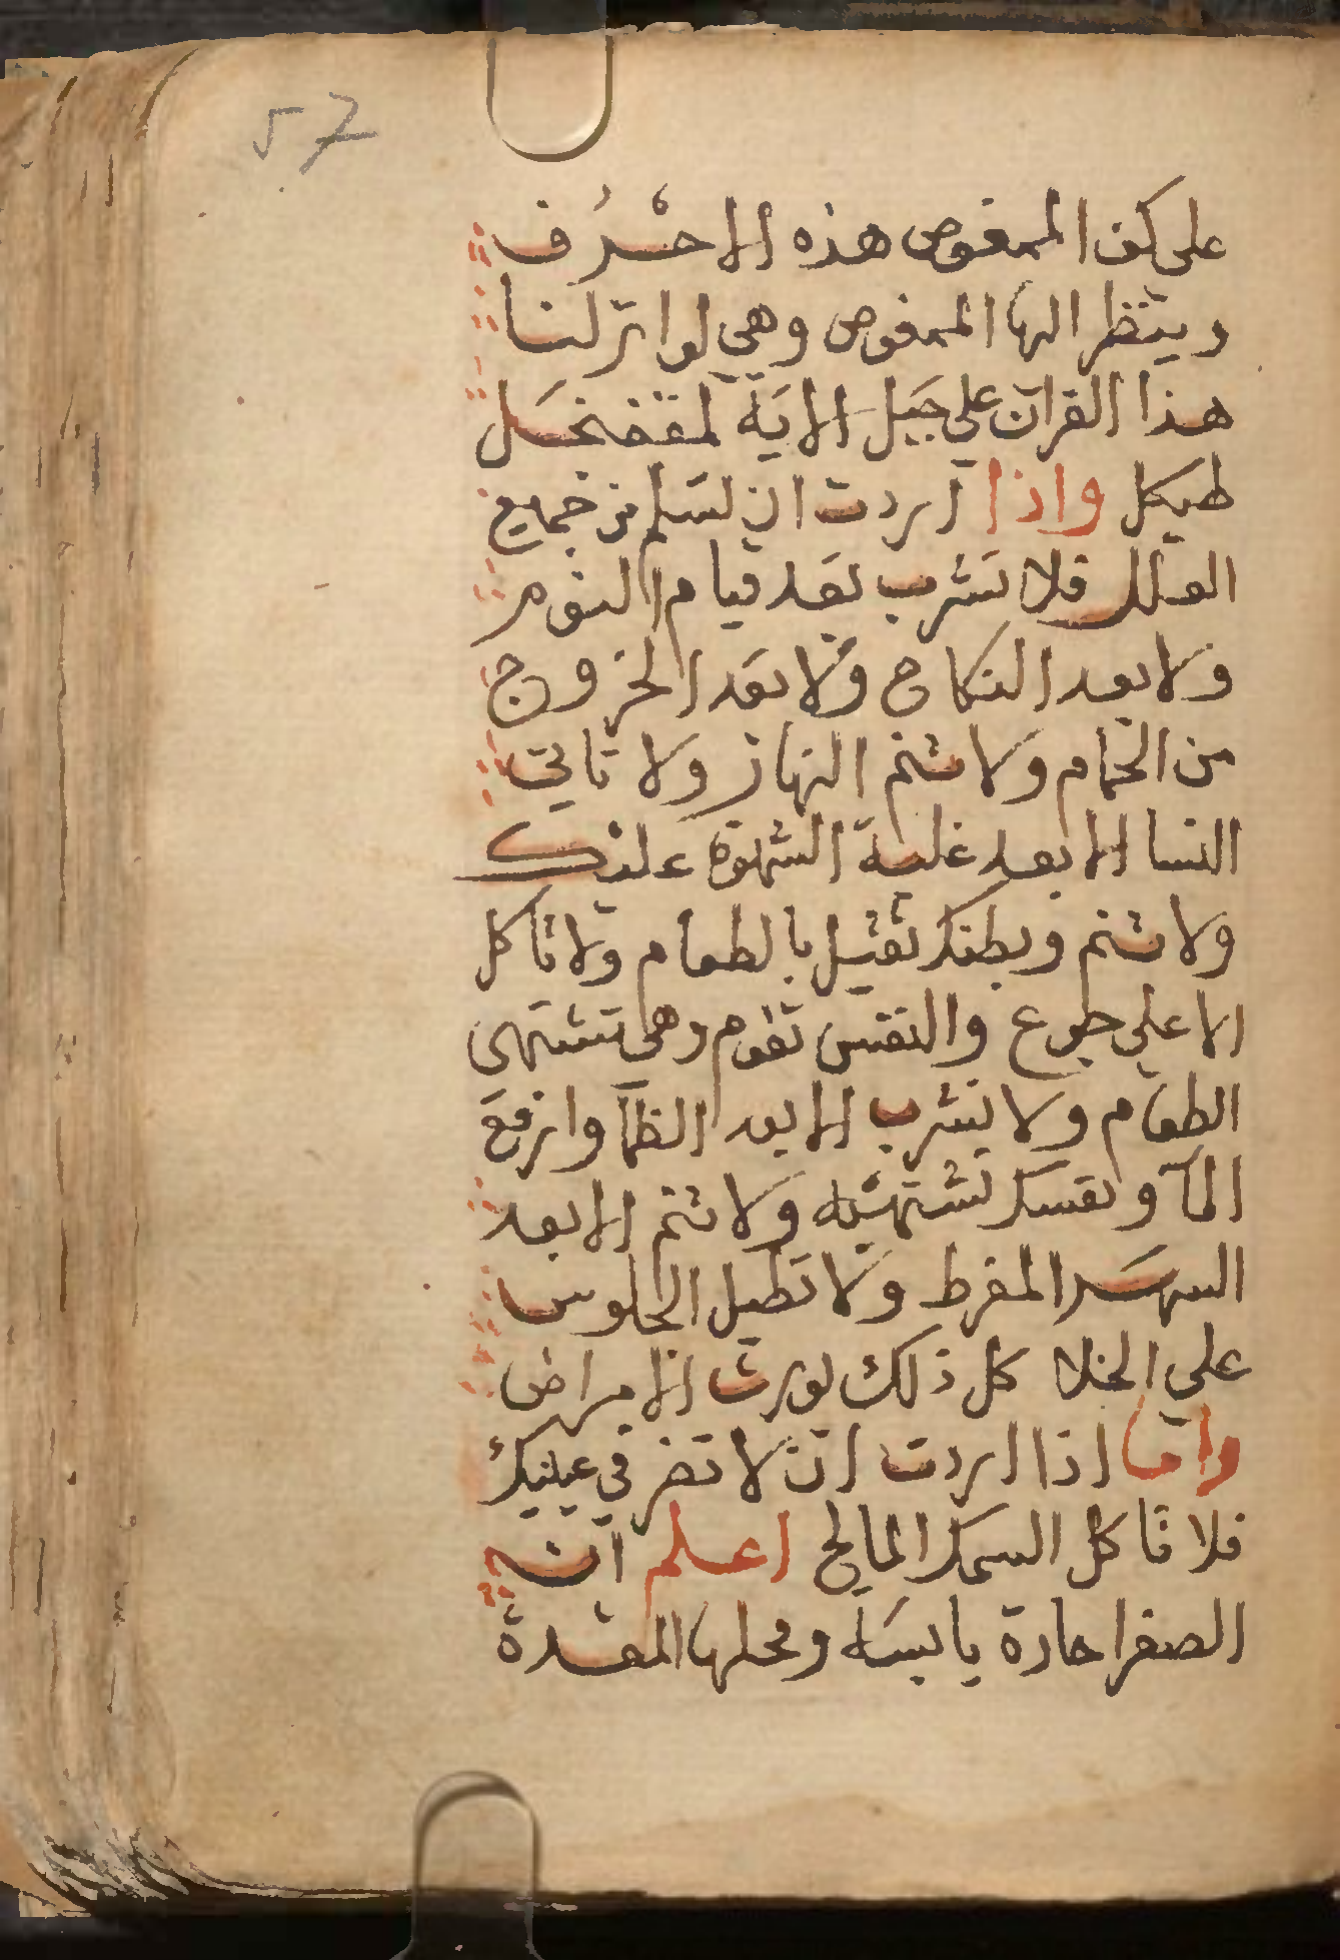 57
على كف الممغوص هذه الاحرف
وينظر اليها الممغوص وهي لو انزلنا
هذا القران علي جبل الاية
طيكل واذا اردت ان تسلم من جميع
العلل فلا تشرب بعد قيام النوم
ولا بعد النكاح ولا بعد الخروج
من الحمام ولا تنم النهار ولا تاتي
النسا الا بعد غلبة الشهوة عليك
ولا تنم وبطنك ثقيل بالطعام ولا تاكل
الا علي جوع والنفس تقوم وهي تشتهى
الطعام ولا تشرب الا بعد الظمآ وارفع
المآ ونفسك تشتهيه ولا تنم الا بعد
السهر المفرط ولا تطيل الجلوس
علي الخلا كل ذلك يورث الامراض
واما اذا اردت ان لا تضر في عينيك
فلا تاكل السمك المالح اعلم انه
الصفرا حارة يابسه ومحلها المعدة